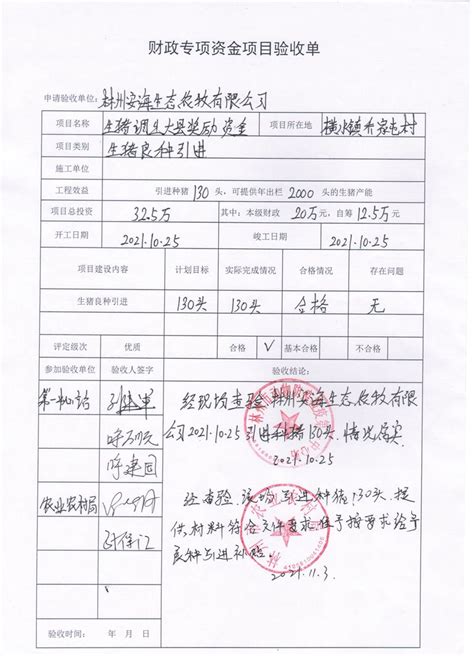 财政专项资金项目验收单
申请验收单位：林州安海生态农牧有限公司
项目名称 生猪调出大县奖励资金 项目所在地 横水镇乔家屯村
项目类别 生猪良种引进
施工单位
工程效益 引进种猪 130 头，可提供年出栏 2000 头的生猪产能
项目总投资 32.5万 其中：本级财政 20万 元，自筹 12.5万 元
开工日期 2021.10.25 竣工日期 2021.10.25
项目建设内容 计划目标 实际完成情况 合格情况 存在问题
生猪良种引进 130头 130头 合格 无
评定级次 优质 合格 √ 基本合格 不合格
参加验收单位 验收人签字 验收结论：
第一中心站
经现场查验林州安海生态农牧有限
公司2021.10.25引进种猪130头，情况属实
2021.10.25
农业农村局
经查验，该场引进种猪130头，提
供材料符合文件要求，准予按要求给予
良种引进补贴。
2021.11.3
验收时间： 年 月 日